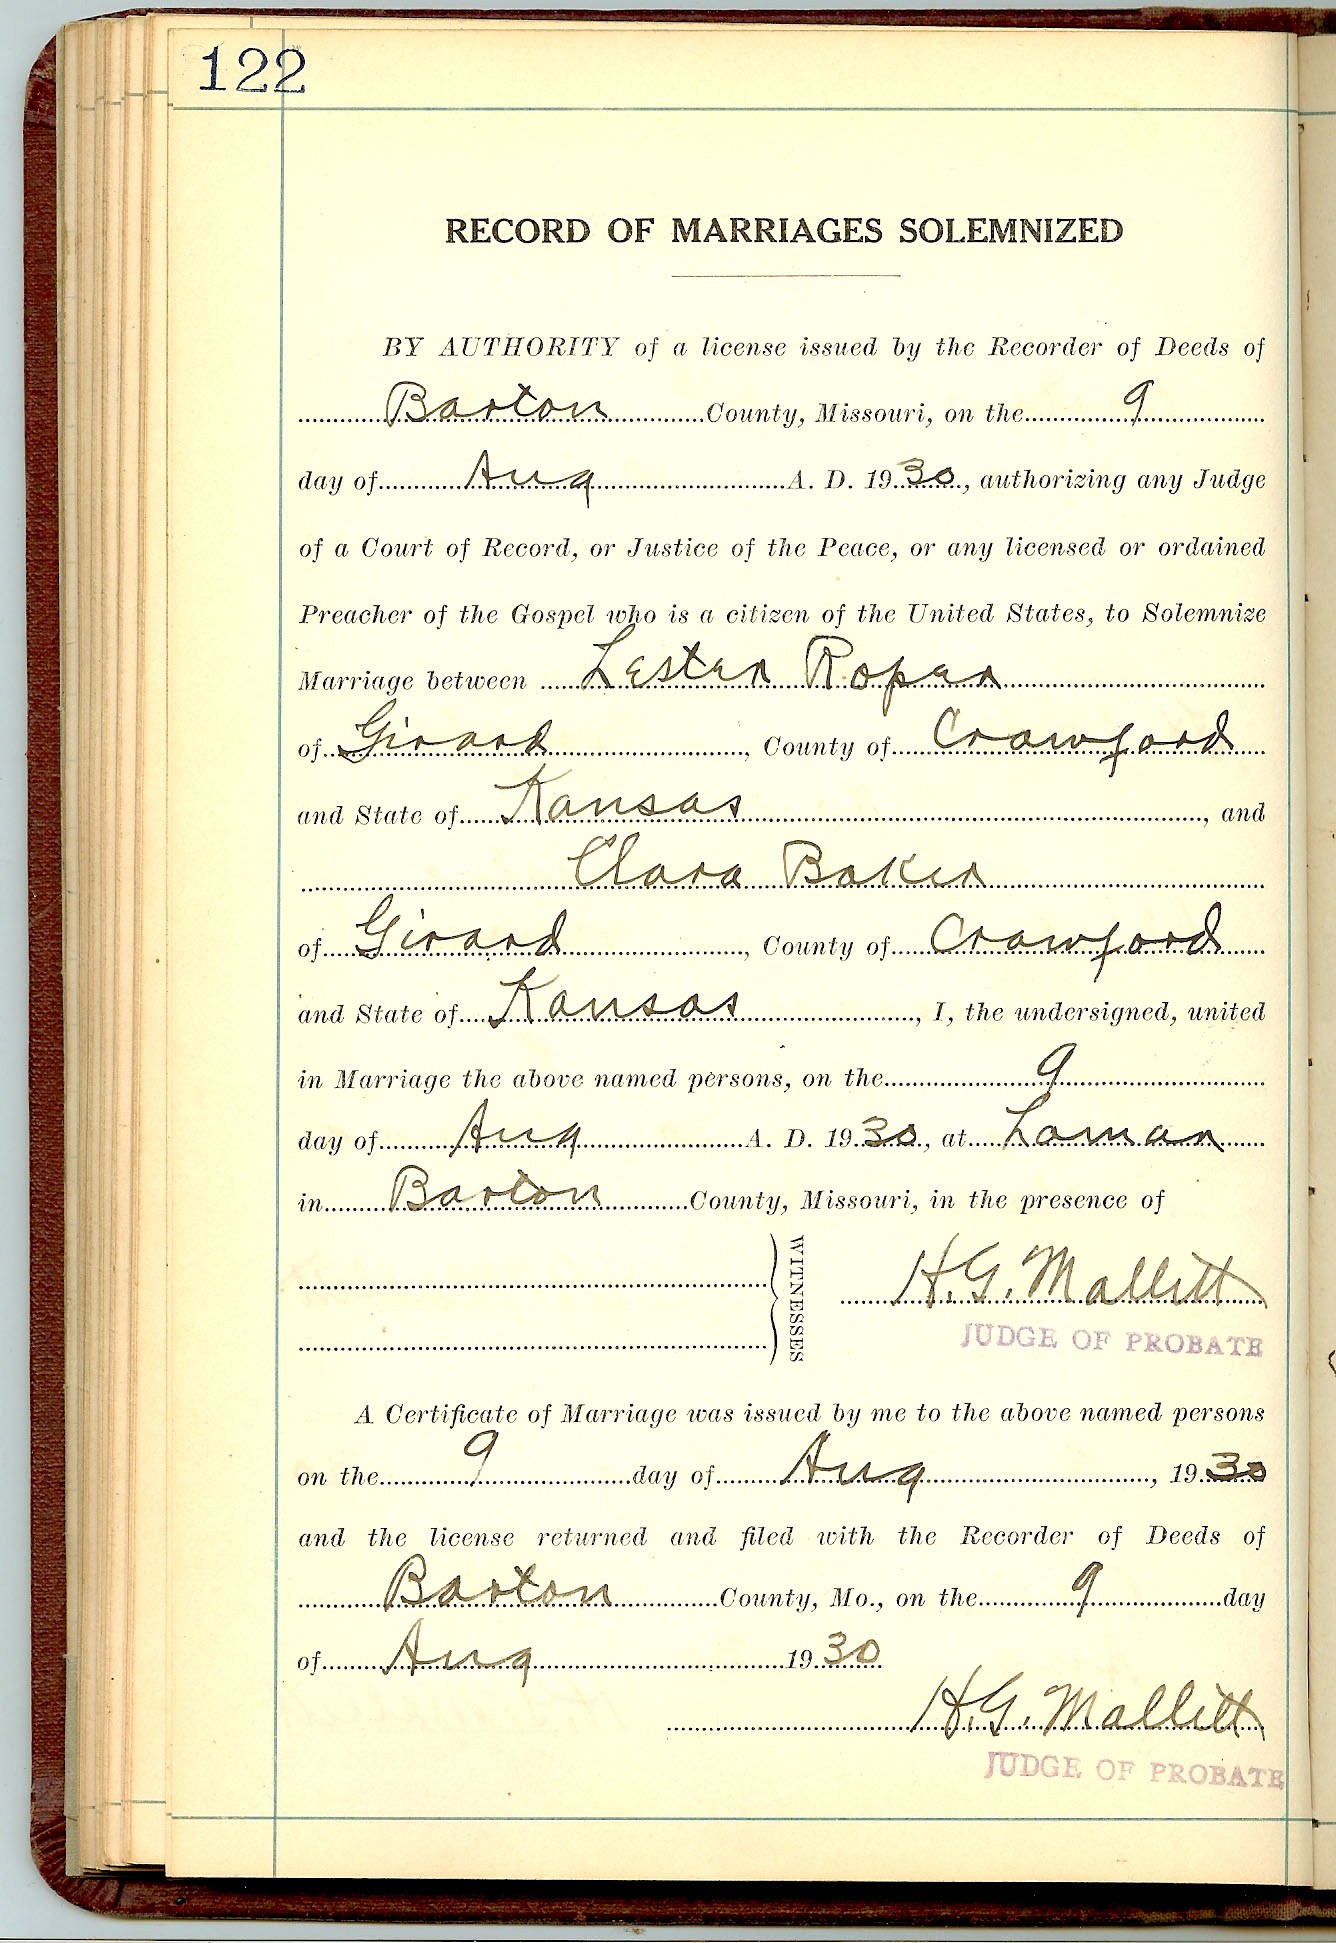 122
RECORD OF MARRIAGES SOLEMNIZED
BY AUTHORITY of a license issued by the Recorder of Deeds of
Barton County, Missouri, on the 9
day of Aug A. D. 1930, authorizing any Judge
of a Court of Record, or Justice of the Peace, or any licensed or ordained
Preacher of the Gospel who is a citizen of the United States, to Solemnize
Marriage between Lester Roper
of Girard, County of Crawford
and State of Kansas, and
Clara Baker
of Girard, County of Crawford
and State of Kansas, I, the undersigned, united
in Marriage the above named persons, on the 9
day of Aug A. D. 1930, at Lamar
in Barton County, Missouri, in the presence of
WITNESSES
H. G. Mallett
JUDGE OF PROBATE
A Certificate of Marriage was issued by me to the above named persons
on the 9 day of Aug, 1930
and the license returned and filed with the Recorder of Deeds of
Barton County, Mo., on the 9 day
of Aug 1930
H. G. Mallett
JUDGE OF PROBATE